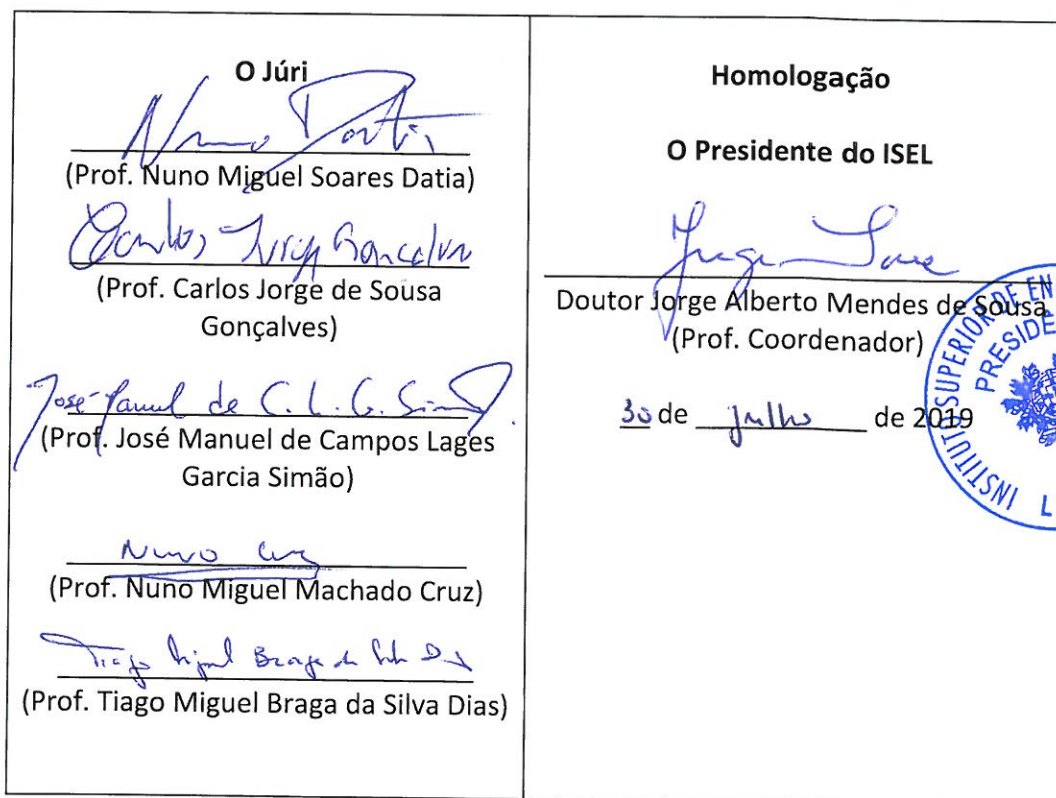 O Júri
Nuno Datia
(Prof. Nuno Miguel Soares Datia)
Carlos Jorge Gonçalves
(Prof. Carlos Jorge de Sousa
Gonçalves)
José Manuel de C. L. G. Simão
(Prof. José Manuel de Campos Lages
Garcia Simão)
Nuno Cruz
(Prof. Nuno Miguel Machado Cruz)
Tiago Miguel Braga da Silva Dias
(Prof. Tiago Miguel Braga da Silva Dias)
Homologação
O Presidente do ISEL
Jorge Sousa
Doutor Jorge Alberto Mendes de Sousa
(Prof. Coordenador)
30 de julho de 2019
INSTITUTO SUPERIOR DE EN
PRESIDÊ
L